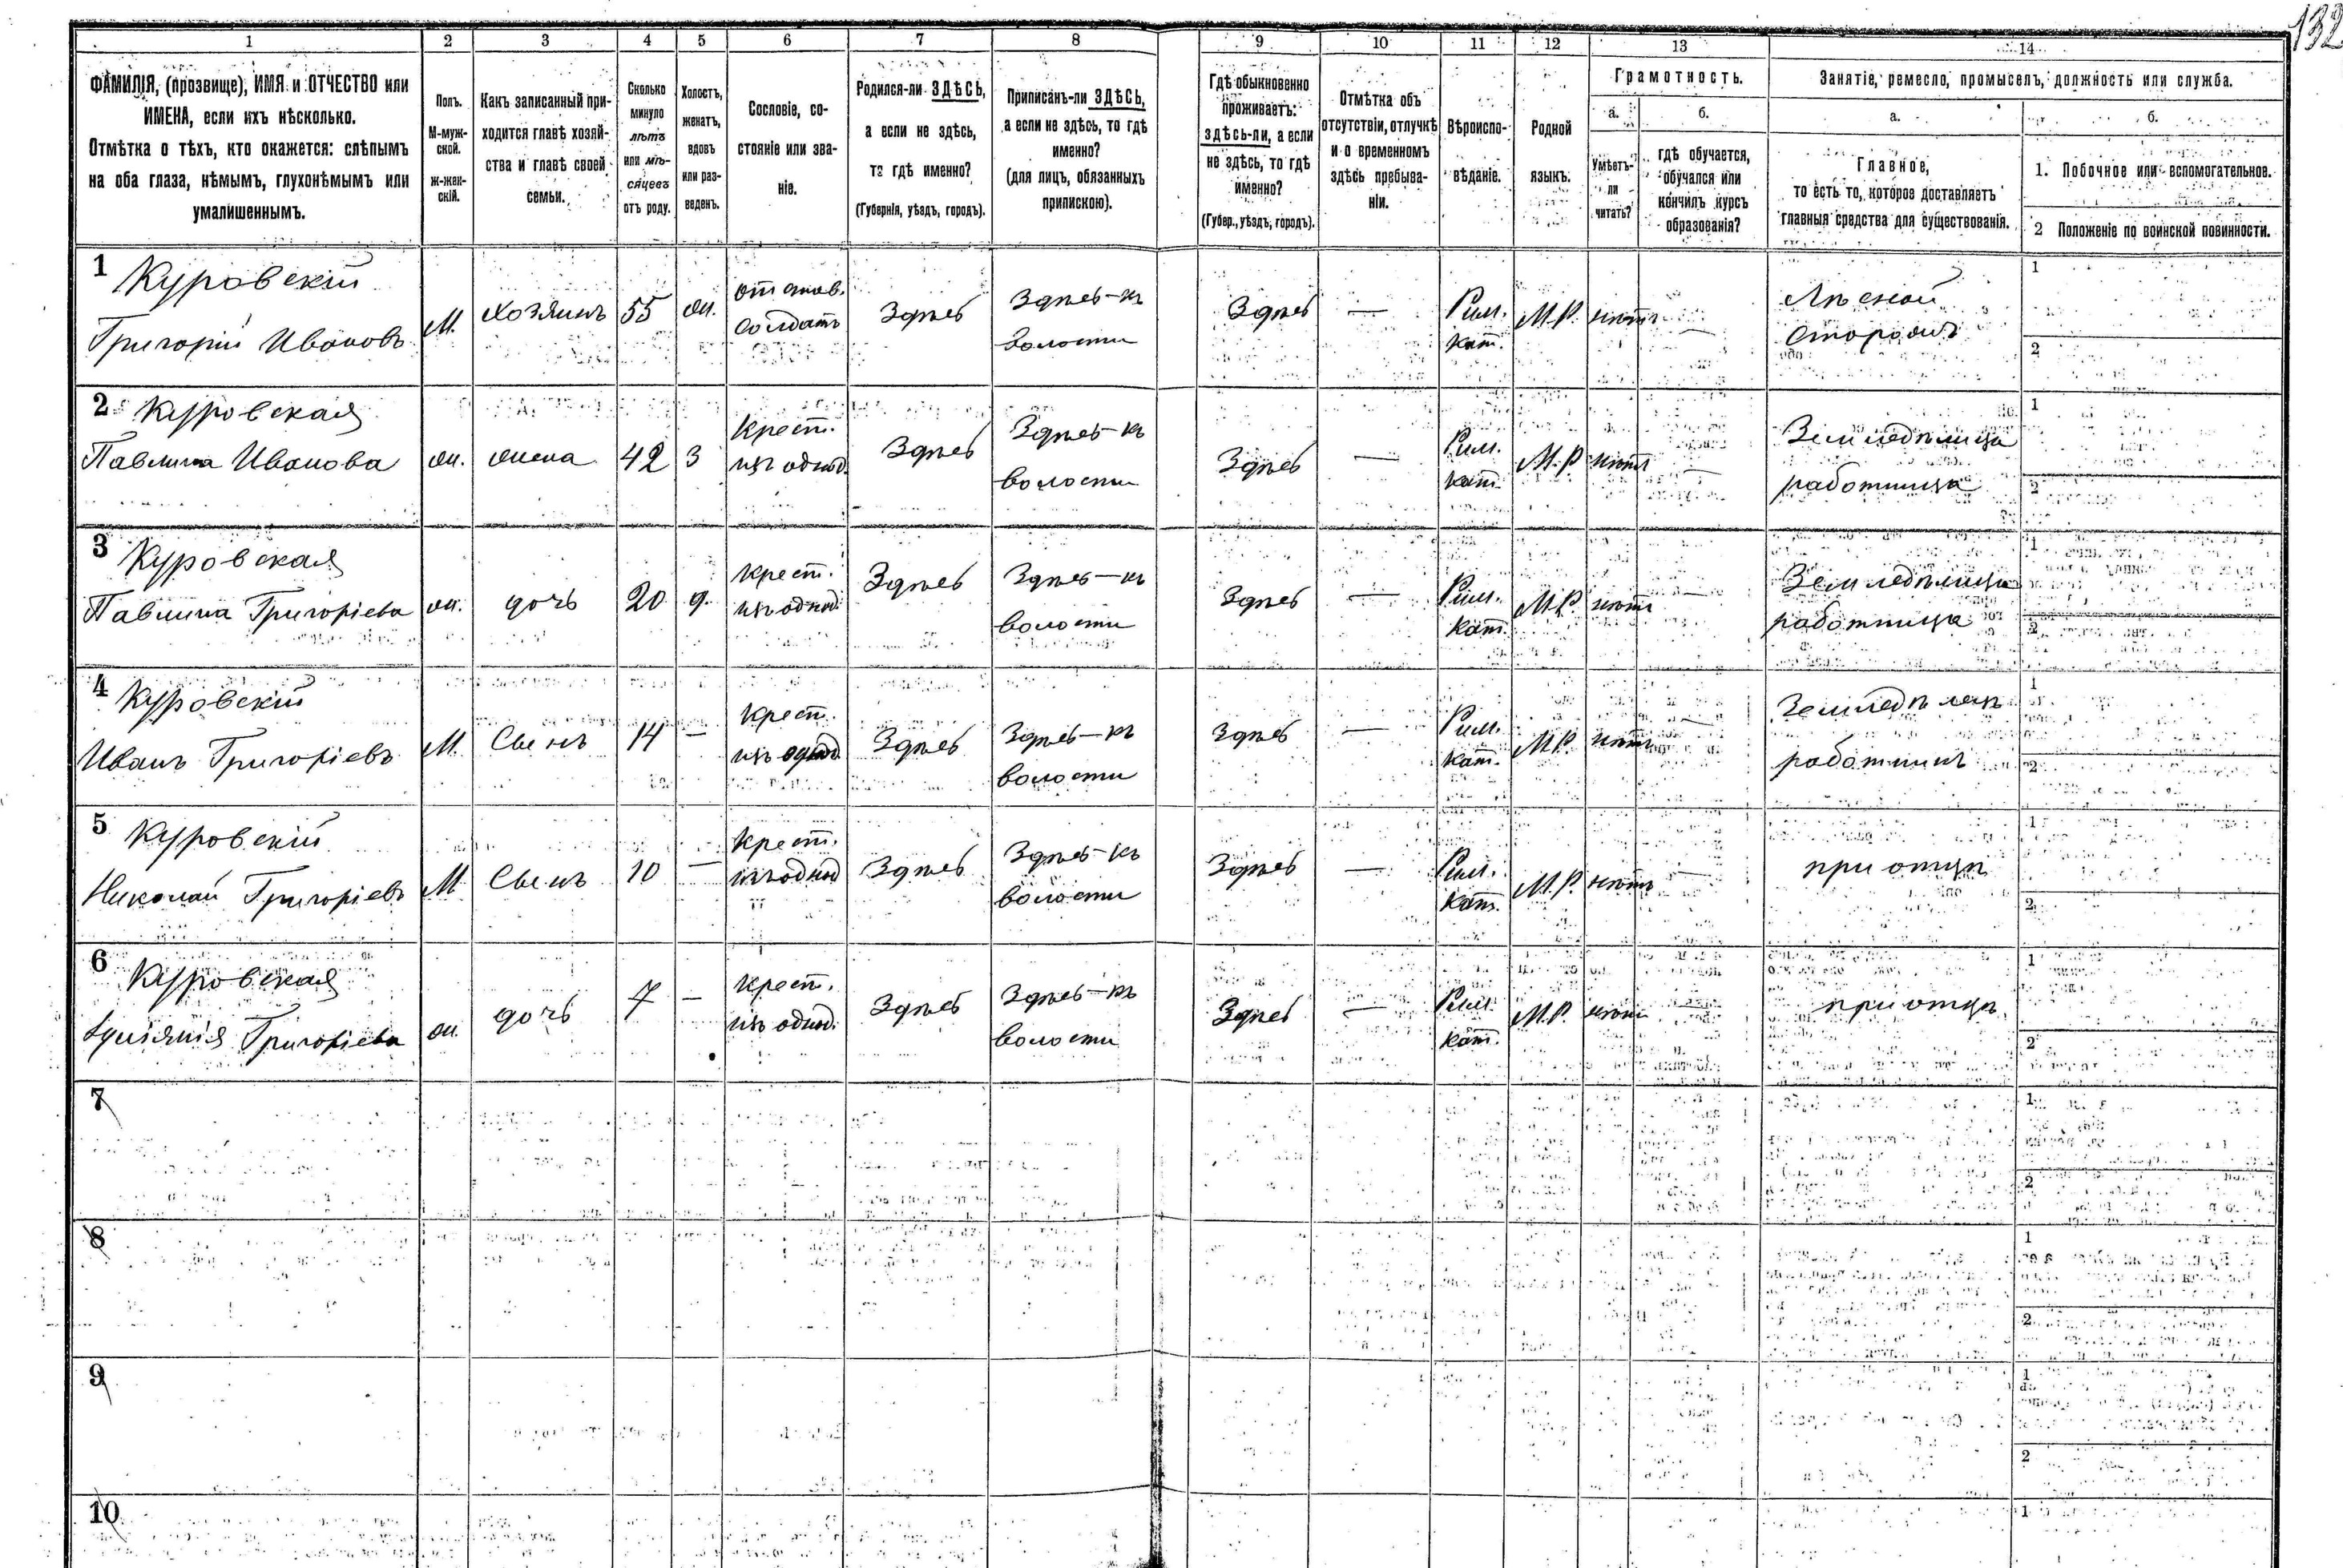 132
1 2 3 4 5 6 7 8 9 10 11 12 13 14
ФАМИЛІЯ, (прозвище), ИМЯ и ОТЧЕСТВО или
ИМЕНА, если ихъ нѣсколько.
Отмѣтка о тѣхъ, кто окажется: слѣпымъ
на оба глаза, нѣмымъ, глухонѣмымъ или
умалишеннымъ.
Полъ.
М-муж-
ской.
Ж-жен-
скій.
Какъ записанный при-
ходится главѣ хозяй-
ства и главѣ своей
семьи.
Сколько
минуло
лѣтъ
или мѣ-
сяцевъ
отъ роду.
Холостъ,
женатъ,
вдовъ
или раз-
веденъ.
Сословіе, со-
стояніе или зва-
ніе.
Родился-ли ЗДѢСЬ,
а если не здѣсь,
то гдѣ именно?
(Губернія, уѣздъ, городъ).
Приписанъ-ли ЗДѢСЬ,
а если не здѣсь, то гдѣ
именно?
(для лицъ, обязанныхъ
припискою).
Гдѣ обыкновенно
проживаетъ:
здѣсь-ли, а если
не здѣсь, то гдѣ
именно?
(Губер., уѣздъ, городъ).
Отмѣтка объ
отсутствіи, отлучкѣ
и о временномъ
здѣсь пребыва-
ніи.
Вѣроиспо-
вѣданіе.
Родной
языкъ.
Грамотность.
а.
Умѣетъ-
ли
читать?
б.
гдѣ обучается,
обучался или
кончилъ курсъ
образованія?
Занятіе, ремесло, промыселъ, должность или служба.
а.
Главное,
то есть то, которое доставляетъ
главныя средства для существованія.
б.
1. Побочное или вспомогательное.
2 Положеніе по воинской повинности.
1 Куровскій
Григорій Ивановъ
М.
хозяинъ
55
ж.
отстав.
солдатъ
Здѣсь
Здѣсь-къ
волости
Здѣсь
—
Рим.
кат.
М.Р.
нѣтъ
—
Лѣсной
сторожъ
1
2
2 Куровская
Павлина Иванова
ж.
жена
42
З
крест.
изъ однод.
Здѣсь
Здѣсь-къ
волости
Здѣсь
—
Рим.
кат.
М.Р.
нѣтъ
—
Земледѣлица
работница
1
2
3 Куровская
Павлина Григоріева
ж.
дочь
20
д.
крест.
изъ однод.
Здѣсь
Здѣсь-къ
волости
Здѣсь
—
Рим.
кат.
М.Р.
нѣтъ
—
Земледѣлица
работница
1
2
4 Куровскій
Иванъ Григоріевъ
М.
Сынъ
14
—
крест.
изъ однод.
Здѣсь
Здѣсь-къ
волости
Здѣсь
—
Рим.
кат.
М.Р.
нѣтъ
—
Земледѣлец
работникъ
1
2
5 Куровскій
Николай Григоріевъ
М
Сынъ
10
—
крест.
изъ однод
Здѣсь
Здѣсь-къ
волости
Здѣсь
—
Рим.
кат.
М.Р.
нѣтъ
—
при отцѣ
1
2
6 Куровская
Григоріева
ж.
дочь
7
—
крест.
изъ однод.
Здѣсь
Здѣсь-къ
волости
Здѣсь
—
Рим.
кат.
М.Р.
нѣтъ
—
при отцѣ
1
2
7
1
2
8
1
2
9
1
2
10
1